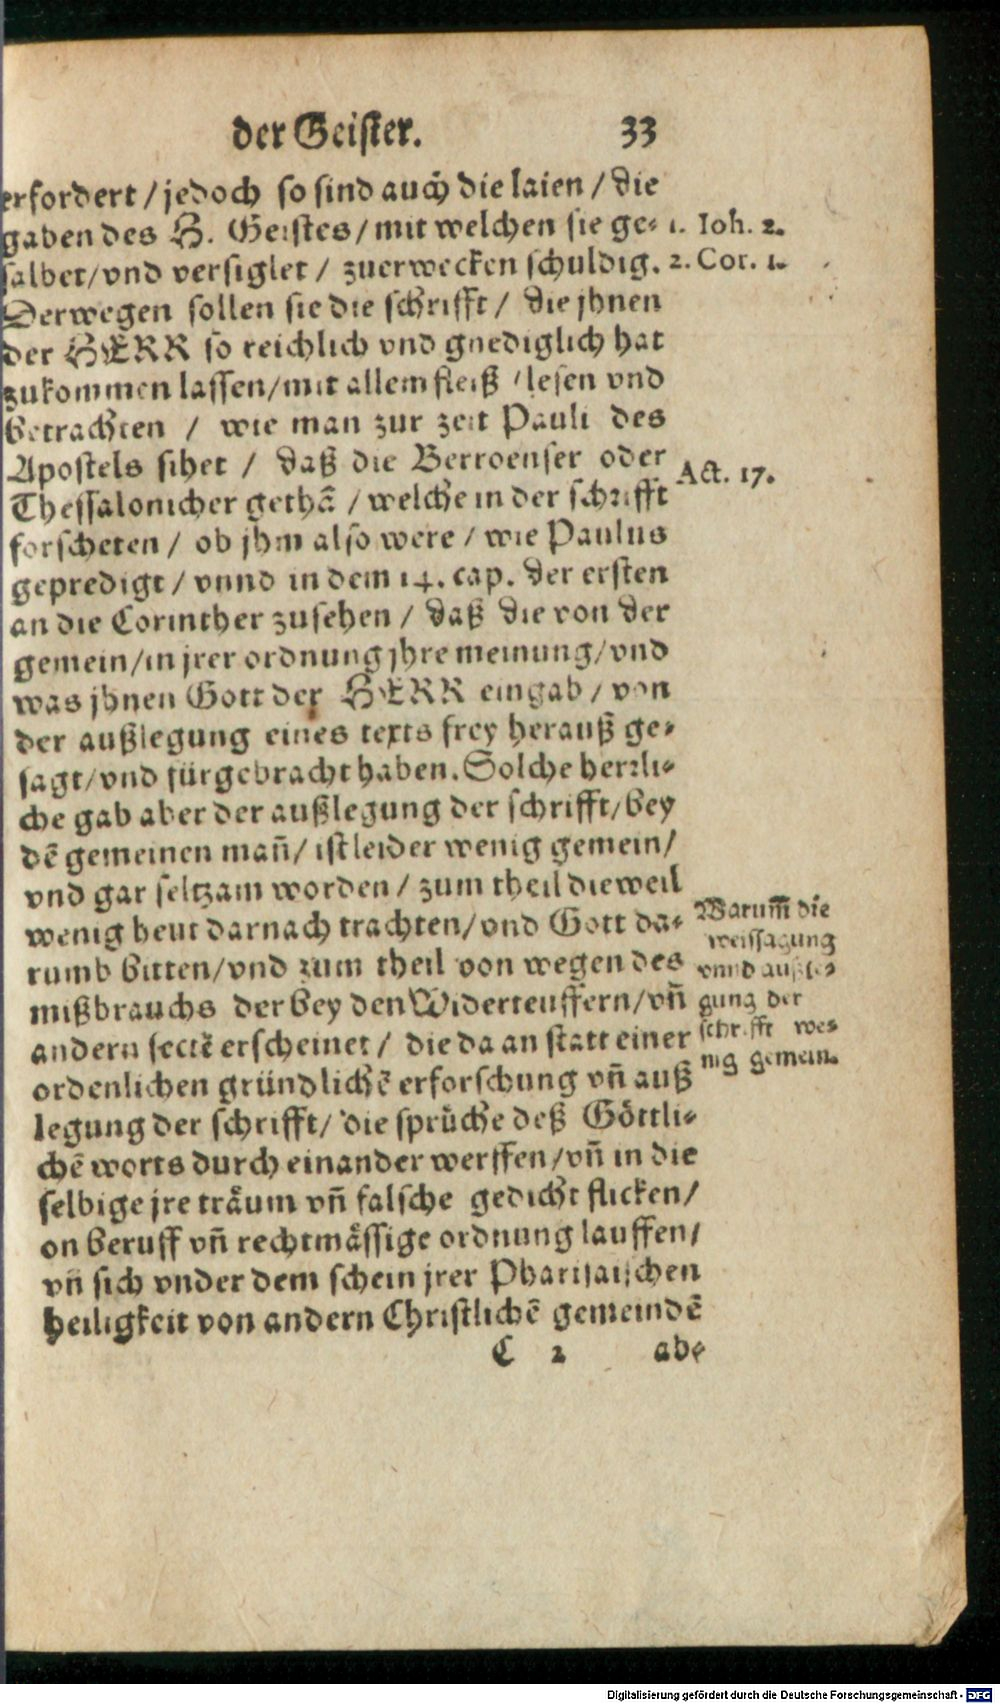 der Geister. 33
erfordert / jedoch so sind auch die laien / die
gaben des H. Geistes / mit welchen sie ge⸗
salbet / vnd versiglet / zuerwecken schuldig.
Derwegen sollen sie die schrifft / die jhnen
der HERR so reichlich vnd gnediglich hat
zukommen lassen / mit allem fleiß / lesen vnd
betrachten / wie man zur zeit Pauli des
Apostels sihet / daß die Berroenser oder
Thessalonicher gethā / welche in der schrifft
forscheten / ob jhm also were / wie Paulus
gepredigt / vnnd in dem 14. cap. der ersten
an die Corinther zusehen / daß die von der
gemein / in jrer ordnung jhre meinung / vnd
was jhnen Gott der HERR eingab / von
der außlegung eines texts frey herauß ge⸗
sagt / vnd fürgebracht haben. Solche herrli⸗
che gab aber der außlegung der schrifft / bey
dē gemeinen mañ / ist leider wenig gemein /
vnd gar seltzam worden / zum theil dieweil
wenig heut darnach trachten / vnd Gott da⸗
rumb bitten / vnd zum theil von wegen des
mißbrauchs der bey den Widerteuffern / vñ
andern sectē erscheinet / die da an statt einer
ordenlichen gründlichē erforschung vñ auß
legung der schrifft / die sprüche deß Göttli⸗
chē worts durch einander werffen / vñ in die
selbige jre träum vñ falsche gedicht flicken /
on beruff vñ rechtmässige ordnung lauffen /
vñ sich vnder dem schein jrer Pharisaischen
heiligkeit von andern Christlichē gemeindē
C 2 abe
1. Ioh. 2.
2. Cor. 1.
Act. 17.
Warum̄ die
weissagung
vnnd außle⸗
gung der
schrifft we⸗
nig gemein.
Digitalisierung gefördert durch die Deutsche Forschungsgemeinschaft - DFG